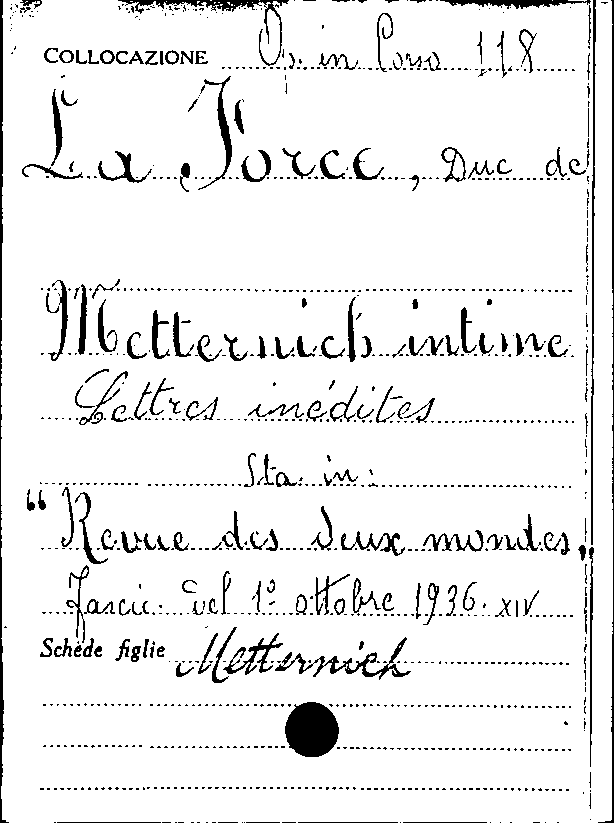 COLLOCAZIONE Op. in Corso 118
La Force, Duc de
Metternich intime
Lettres inédites
Sta in:
“Revue des deux mondes„
Fascic. del 1º ottobre 1936. XIV
Schede figlie Metternich